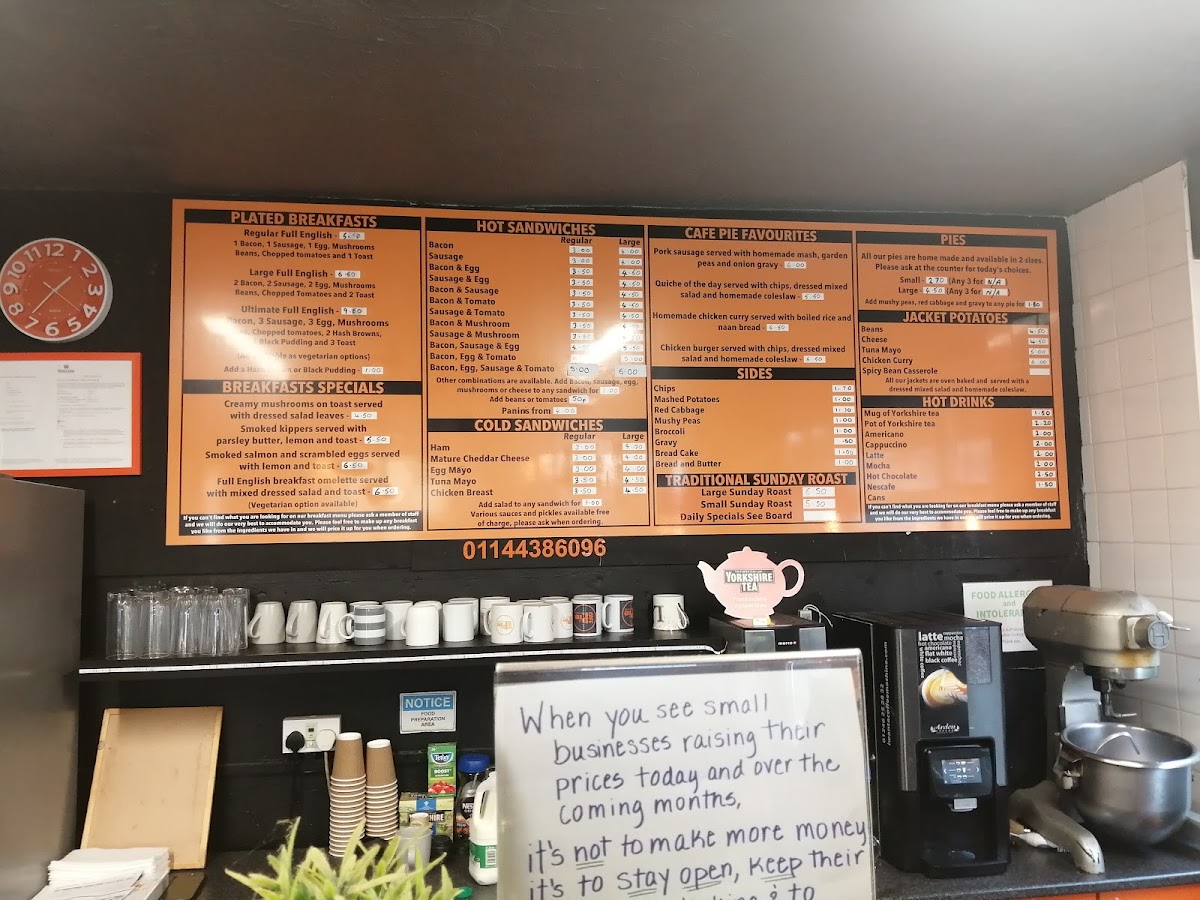 PLATED BREAKFASTS
Regular Full English -
1 Bacon, 1 Sausage, 1 Egg, Mushrooms
Beans, Chopped tomatoes and 1 Toast
Large Full English - 6·50
2 Bacon, 2 Sausage, 2 Egg, Mushrooms
Beans, Chopped Tomatoes and 2 Toast
Ultimate Full English - 9·80
Bacon, 3 Sausage, 3 Egg, Mushrooms
Chopped tomatoes, 2 Hash Browns,
Black Pudding and 3 Toast
as vegetarian options)
Add a or Black Pudding - 1·00
BREAKFASTS SPECIALS
Creamy mushrooms on toast served
with dressed salad leaves - 4·50
Smoked kippers served with
parsley butter, lemon and toast - 5·50
Smoked salmon and scrambled eggs served
with lemon and toast - 6·50
Full English breakfast omelette served
with mixed dressed salad and toast - 6·50
(Vegetarian option available)
If you can't find what you are looking for on our breakfast menu please ask a member of staff
and we will do our very best to accommodate you. Please feel free to make up any breakfast
you like from the ingredients we have in and we will price it up for you when ordering.
HOT SANDWICHES
Regular Large
Bacon 3·00 4·00
Sausage 3·00 4·00
Bacon & Egg 3·50 4·50
Sausage & Egg 3·50 4·50
Bacon & Sausage 3·50 4·50
Bacon & Tomato 3·50 4·50
Sausage & Tomato 3·50 4·50
Bacon & Mushroom 3·50
Sausage & Mushroom 3·50
Bacon, Sausage & Egg
Bacon, Egg & Tomato 5·00
Bacon, Egg, Sausage & Tomato 5·00 6·00
Other combinations are available. Add Bacon, sausage, egg,
mushrooms or cheese to any sandwich for 1·00
Add beans or tomatoes 50p
Panins from 4·00
COLD SANDWICHES
Regular Large
Ham 3·00 4·00
Mature Cheddar Cheese 3·00 4·00
Egg Mayo 3·00 4·00
Tuna Mayo 3·50 4·50
Chicken Breast 3·50 4·50
Add salad to any sandwich for 1·00
Various sauces and pickles available free
of charge, please ask when ordering.
CAFE PIE FAVOURITES
Pork sausage served with homemade mash, garden
peas and onion gravy - 6·00
Quiche of the day served with chips, dressed mixed
salad and homemade coleslaw - 5·50
Homemade chicken curry served with boiled rice and
naan bread - 6·50
Chicken burger served with chips, dressed mixed
salad and homemade coleslaw - 6·50
SIDES
Chips 1·70
Mashed Potatoes 1·00
Red Cabbage 1·10
Mushy Peas 1·00
Broccoli 1·00
Gravy ·50
Bread Cake 1·00
Bread and Butter 1·00
TRADITIONAL SUNDAY ROAST
Large Sunday Roast 6·50
Small Sunday Roast 5·50
Daily Specials See Board
PIES
All our pies are home made and available in 2 sizes.
Please ask at the counter for today's choices.
Small - 2·70 (Any 3 for N/A)
Large - 4·50 (Any 3 for N/A)
Add mushy peas, red cabbage and gravy to any pie for 1·80
JACKET POTATOES
Beans 4·50
Cheese 4·50
Tuna Mayo 5·00
Chicken Curry 6·00
Spicy Bean Casserole
All our jackets are oven baked and served with a
dressed mixed salad and homemade coleslaw.
HOT DRINKS
Mug of Yorkshire tea 1·50
Pot of Yorkshire tea 2·20
Americano 2·00
Cappuccino 2·00
Latte 2·00
Mocha 2·00
Hot Chocolate 2·50
Nescafe 1·50
Cans
If you can't find what you are looking for on our breakfast menu please ask a member of staff
and we will do our very best to accommodate you. Please feel free to make up any breakfast
you like from the ingredients we have in and we will price it up for you when ordering.
01144386096
11 12 1 2 3 4 5 6 7 8 9 10
YORKSHIRE
TEA
FOOD ALLERG
and
INTOLERA
NOTICE
FOOD
PREPARATION
AREA
Tetley
BOOST
latte
cappuccino
mocha
hot chocolate
americano
flat white
black coffee
Arden
When you see small
businesses raising their
prices today and over the
coming months,
it's not to make more money
it's to stay open, keep their
& to